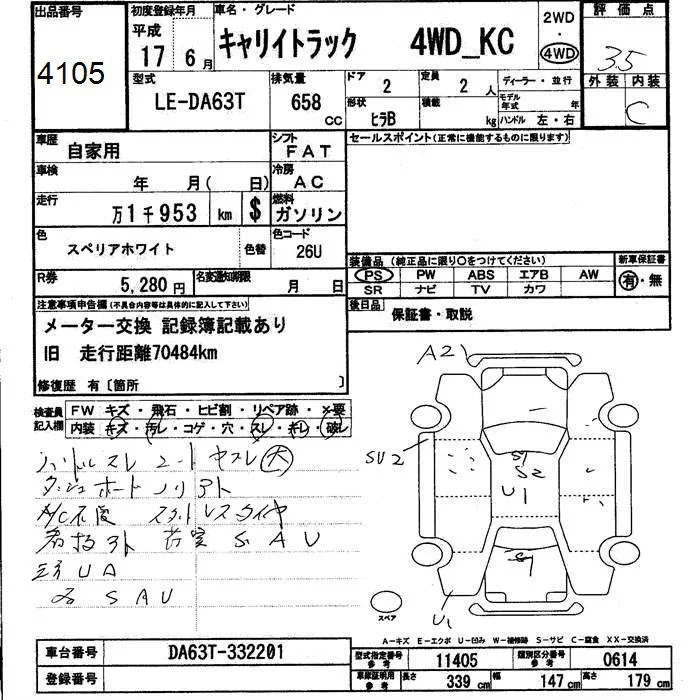 出品番号 初度登録年月 車名・グレード 2WD 評価点
4105 平成 17 6月 キャリイトラック 4WD_KC ・ 4WD 3.5
型式 排気量 ドア 定員 ディーラー・並行 外装 内装
LE-DA63T 658 CC 2 2人 モデル年式 年 C
形状 ヒラB 積載 kg ハンドル 左・右
車歴 シフト セールスポイント(正常に機能するものに限ります)
自家用 FAT
車検 冷房
年 月( 日) AC
走行 燃料
万1千953 km $ ガソリン
色 色コード
スペリアホワイト 色替 26U
装備品(純正品に限り○をつけてください) 新車保証書
PS PW ABS エアB AW 有・無
SR ナビ TV カワ
R券 5,280円 名変通知期限 月 日
後日品 保証書・取説
注意事項申告欄(不具合内容等は具体的に記入して下さい)
メーター交換 記録簿記載あり
旧 走行距離70484km
修復歴 有〔箇所 〕
検査員記入欄 FW キズ・飛石・ヒビ割・リペア跡・×要
内装 キズ・汚レ・コゲ・穴・スレ・キレ・破レ
ハンドルスレ シートヤブレ 大
ダッシュボード ノリアト
A/C不良 スタッドレスタイヤ
S A U
U A
S A U
A2
SU2
S1
S2
U1
S1
U1
スペア
A-キズ E-エクボ U-凹み W-補修跡 S-サビ C-腐食 XX-交換済
車台番号 DA63T-332201 型式指定番号 参考 11405 類別区分番号 参考 0614
登録番号 車庫証明用 参考 長さ 339 cm 幅 147 cm 高さ 179 cm